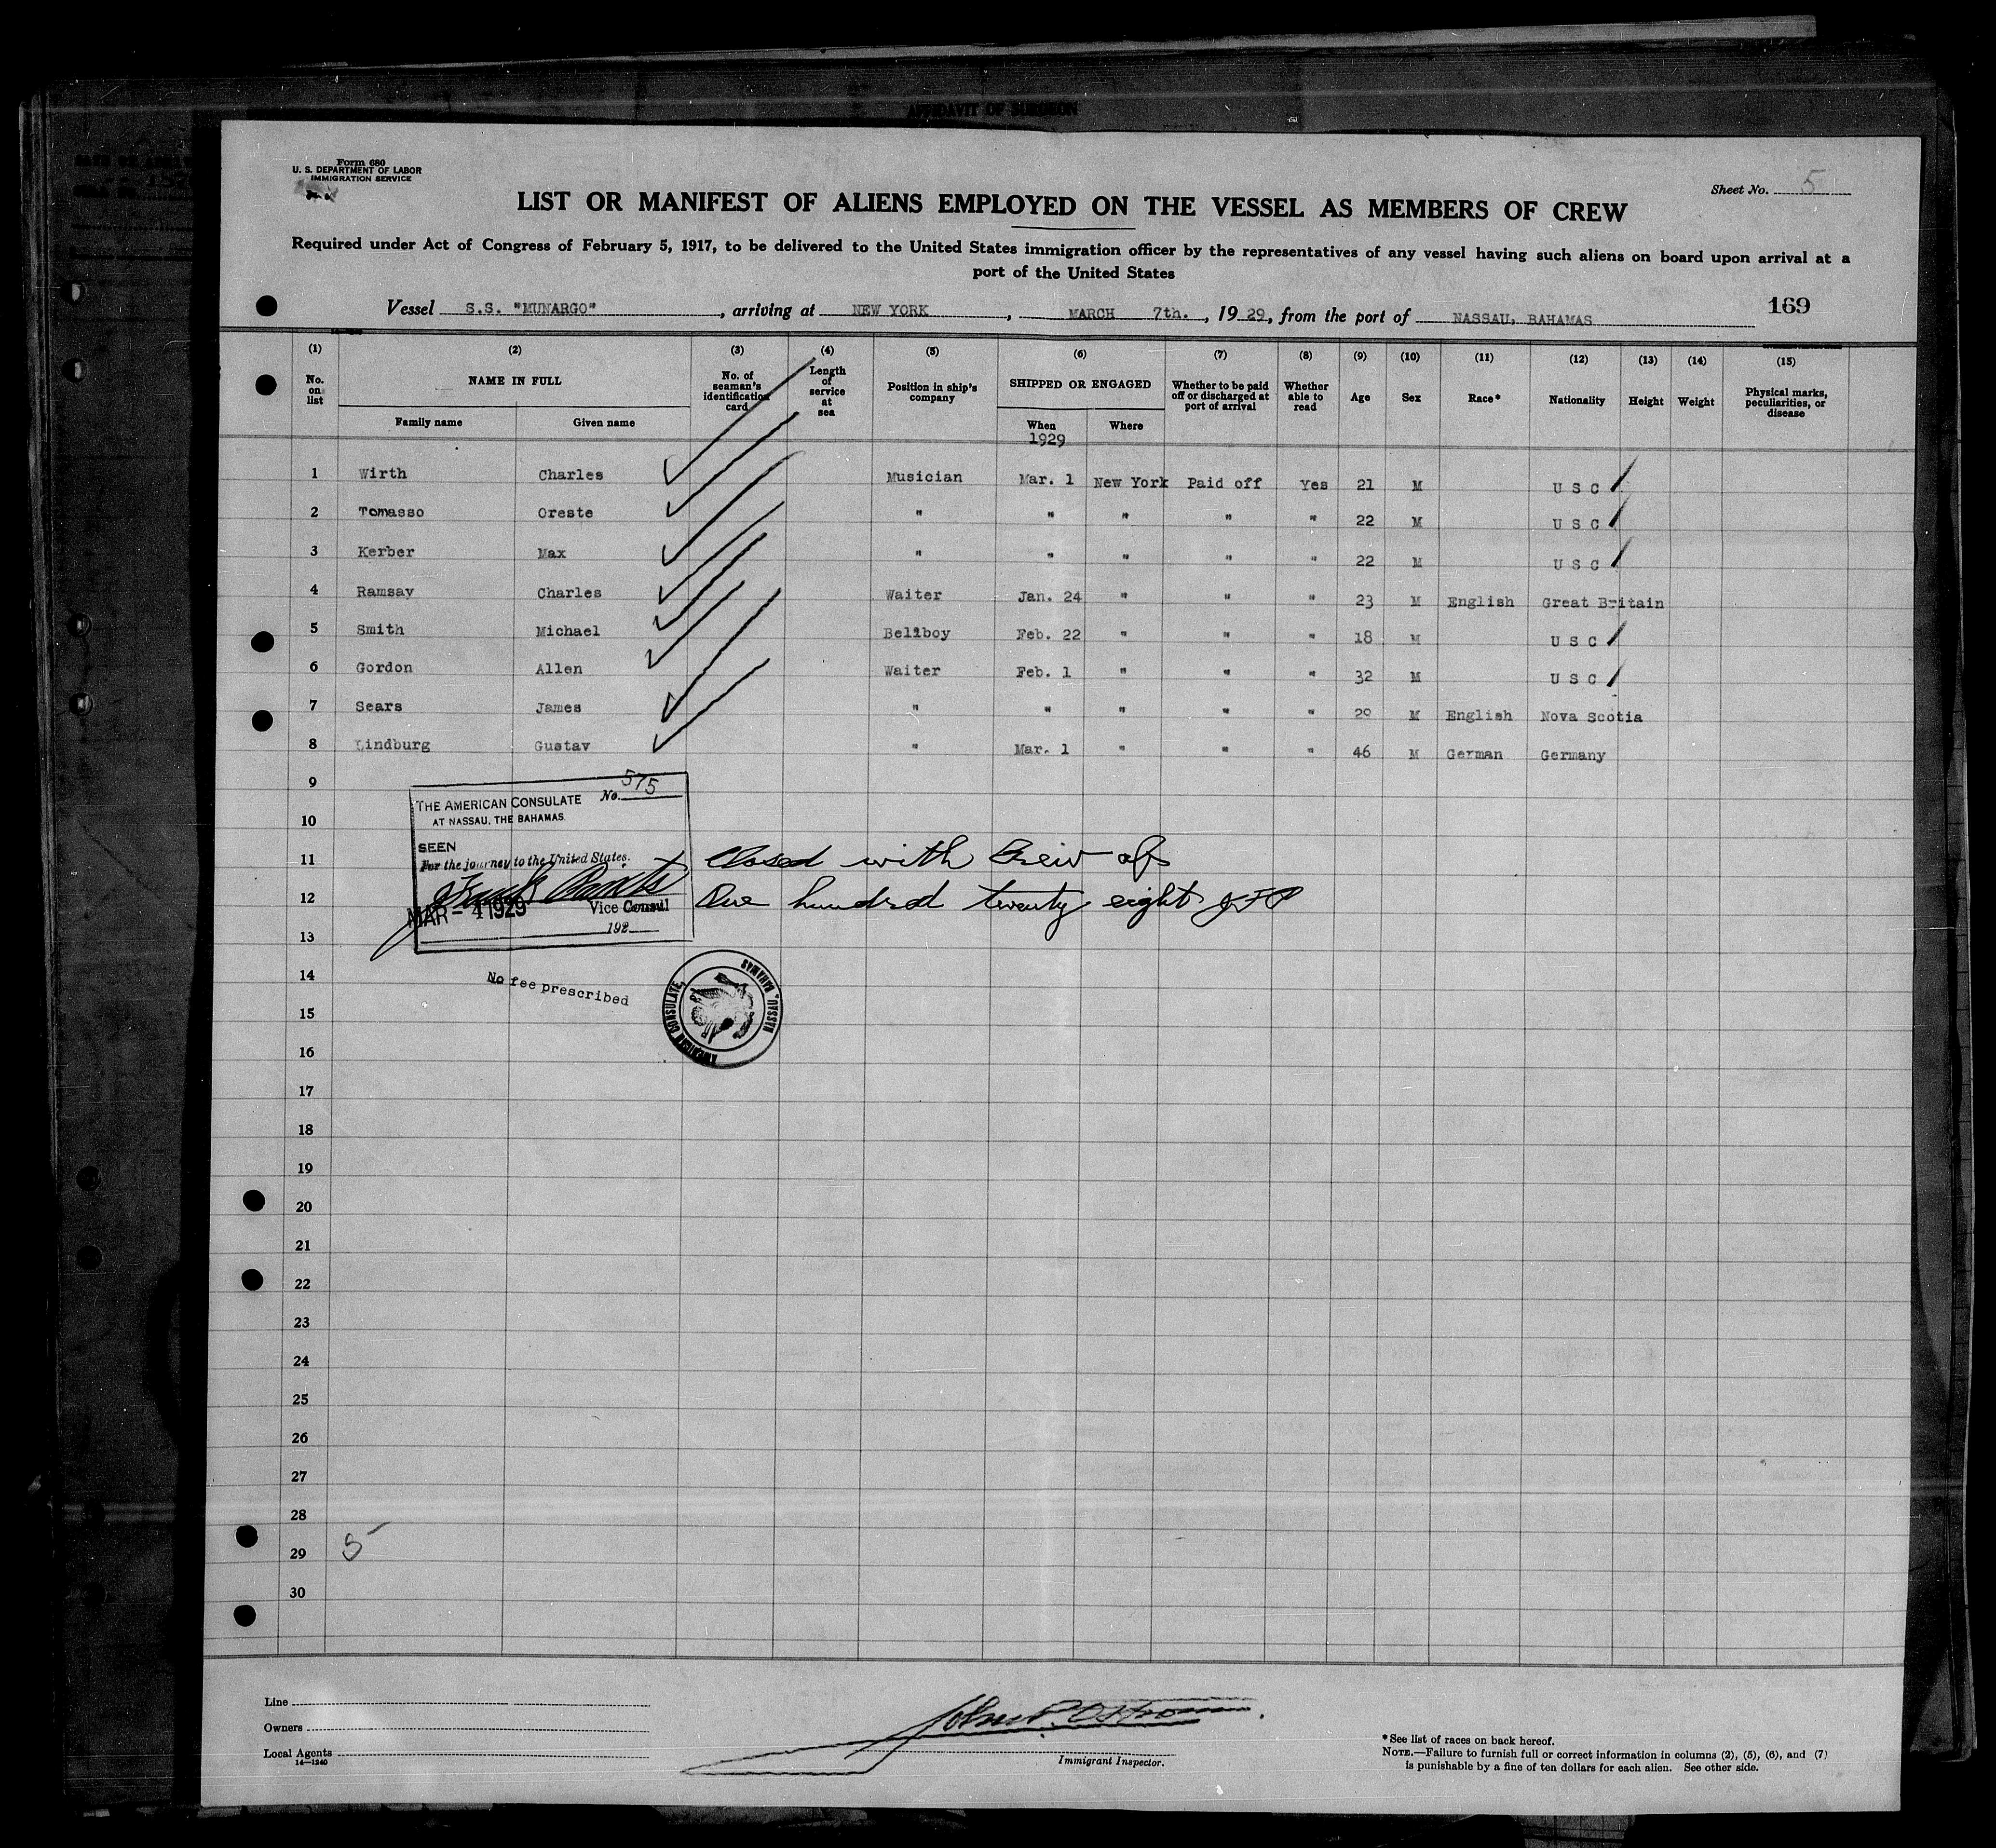 AFFIDAVIT OF SURGEON
Form 680
U. S. DEPARTMENT OF LABOR
IMMIGRATION SERVICE
Sheet No. 5
LIST OR MANIFEST OF ALIENS EMPLOYED ON THE VESSEL AS MEMBERS OF CREW
Required under Act of Congress of February 5, 1917, to be delivered to the United States immigration officer by the representatives of any vessel having such aliens on board upon arrival at a
port of the United States
Vessel S.S. "MUNARGO", arriving at NEW YORK, MARCH 7th., 1929, from the port of NASSAU, BAHAMAS 169
(1) (2) (3) (4) (5) (6) (7) (8) (9) (10) (11) (12) (13) (14) (15)
No. on list NAME IN FULL No. of seaman's identification card Length of service at sea Position in ship's company SHIPPED OR ENGAGED Whether to be paid off or discharged at port of arrival Whether able to read Age Sex Race* Nationality Height Weight Physical marks, peculiarities, or disease
Family name Given name When Where
1929
1 Wirth Charles Musician Mar. 1 New York Paid off Yes 21 M U S C
2 Tomasso Oreste " " " " " 22 M U S C
3 Kerber Max " " " " " 22 M U S C
4 Ramsay Charles Waiter Jan. 24 " " " 23 M English Great Britain
5 Smith Michael Bellboy Feb. 22 " " " 18 M U S C
6 Gordon Allen Waiter Feb. 1 " " " 32 M U S C
7 Sears James " " " " " 29 M English Nova Scotia
8 Lindburg Gustav " Mar. 1 " " " 46 M German Germany
9
THE AMERICAN CONSULATE No. 575
AT NASSAU, THE BAHAMAS
10
SEEN
For the journey to the United States.
11 Closed with Crew of
12 One hundred twenty eight JFP
MAR - 4 1929 Vice Consul
192
13
14
No fee prescribed
AMERICAN CONSULATE, NASSAU, BAHAMAS
15
16
17
18
19
20
21
22
23
24
25
26
27
28
29 5
30
Line
Owners
Local Agents
14—1240
John P. Ostrom
Immigrant Inspector.
* See list of races on back hereof.
NOTE.—Failure to furnish full or correct information in columns (2), (5), (6), and (7)
is punishable by a fine of ten dollars for each alien. See other side.